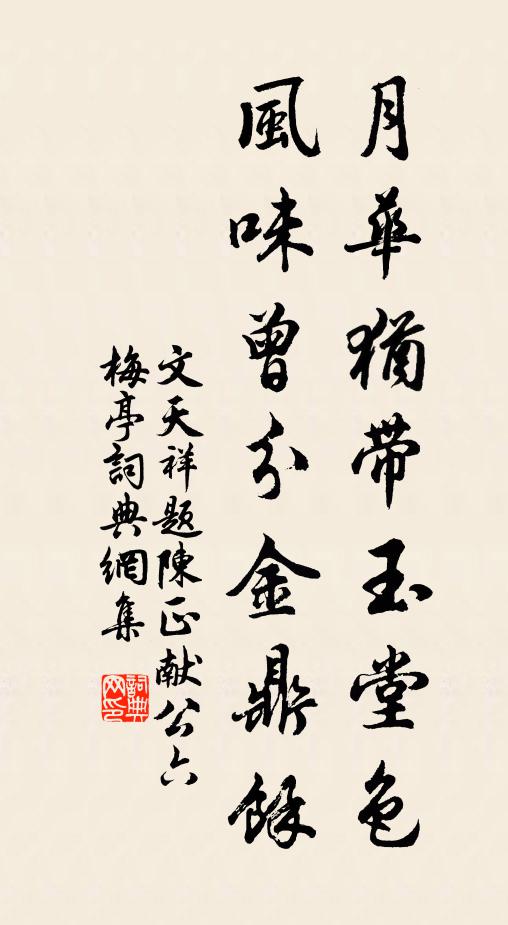 月華猶帶玉堂色
風味曾分金鼎餘
文天祥題陳正献公六
梅亭詞典網集
詞典
网印